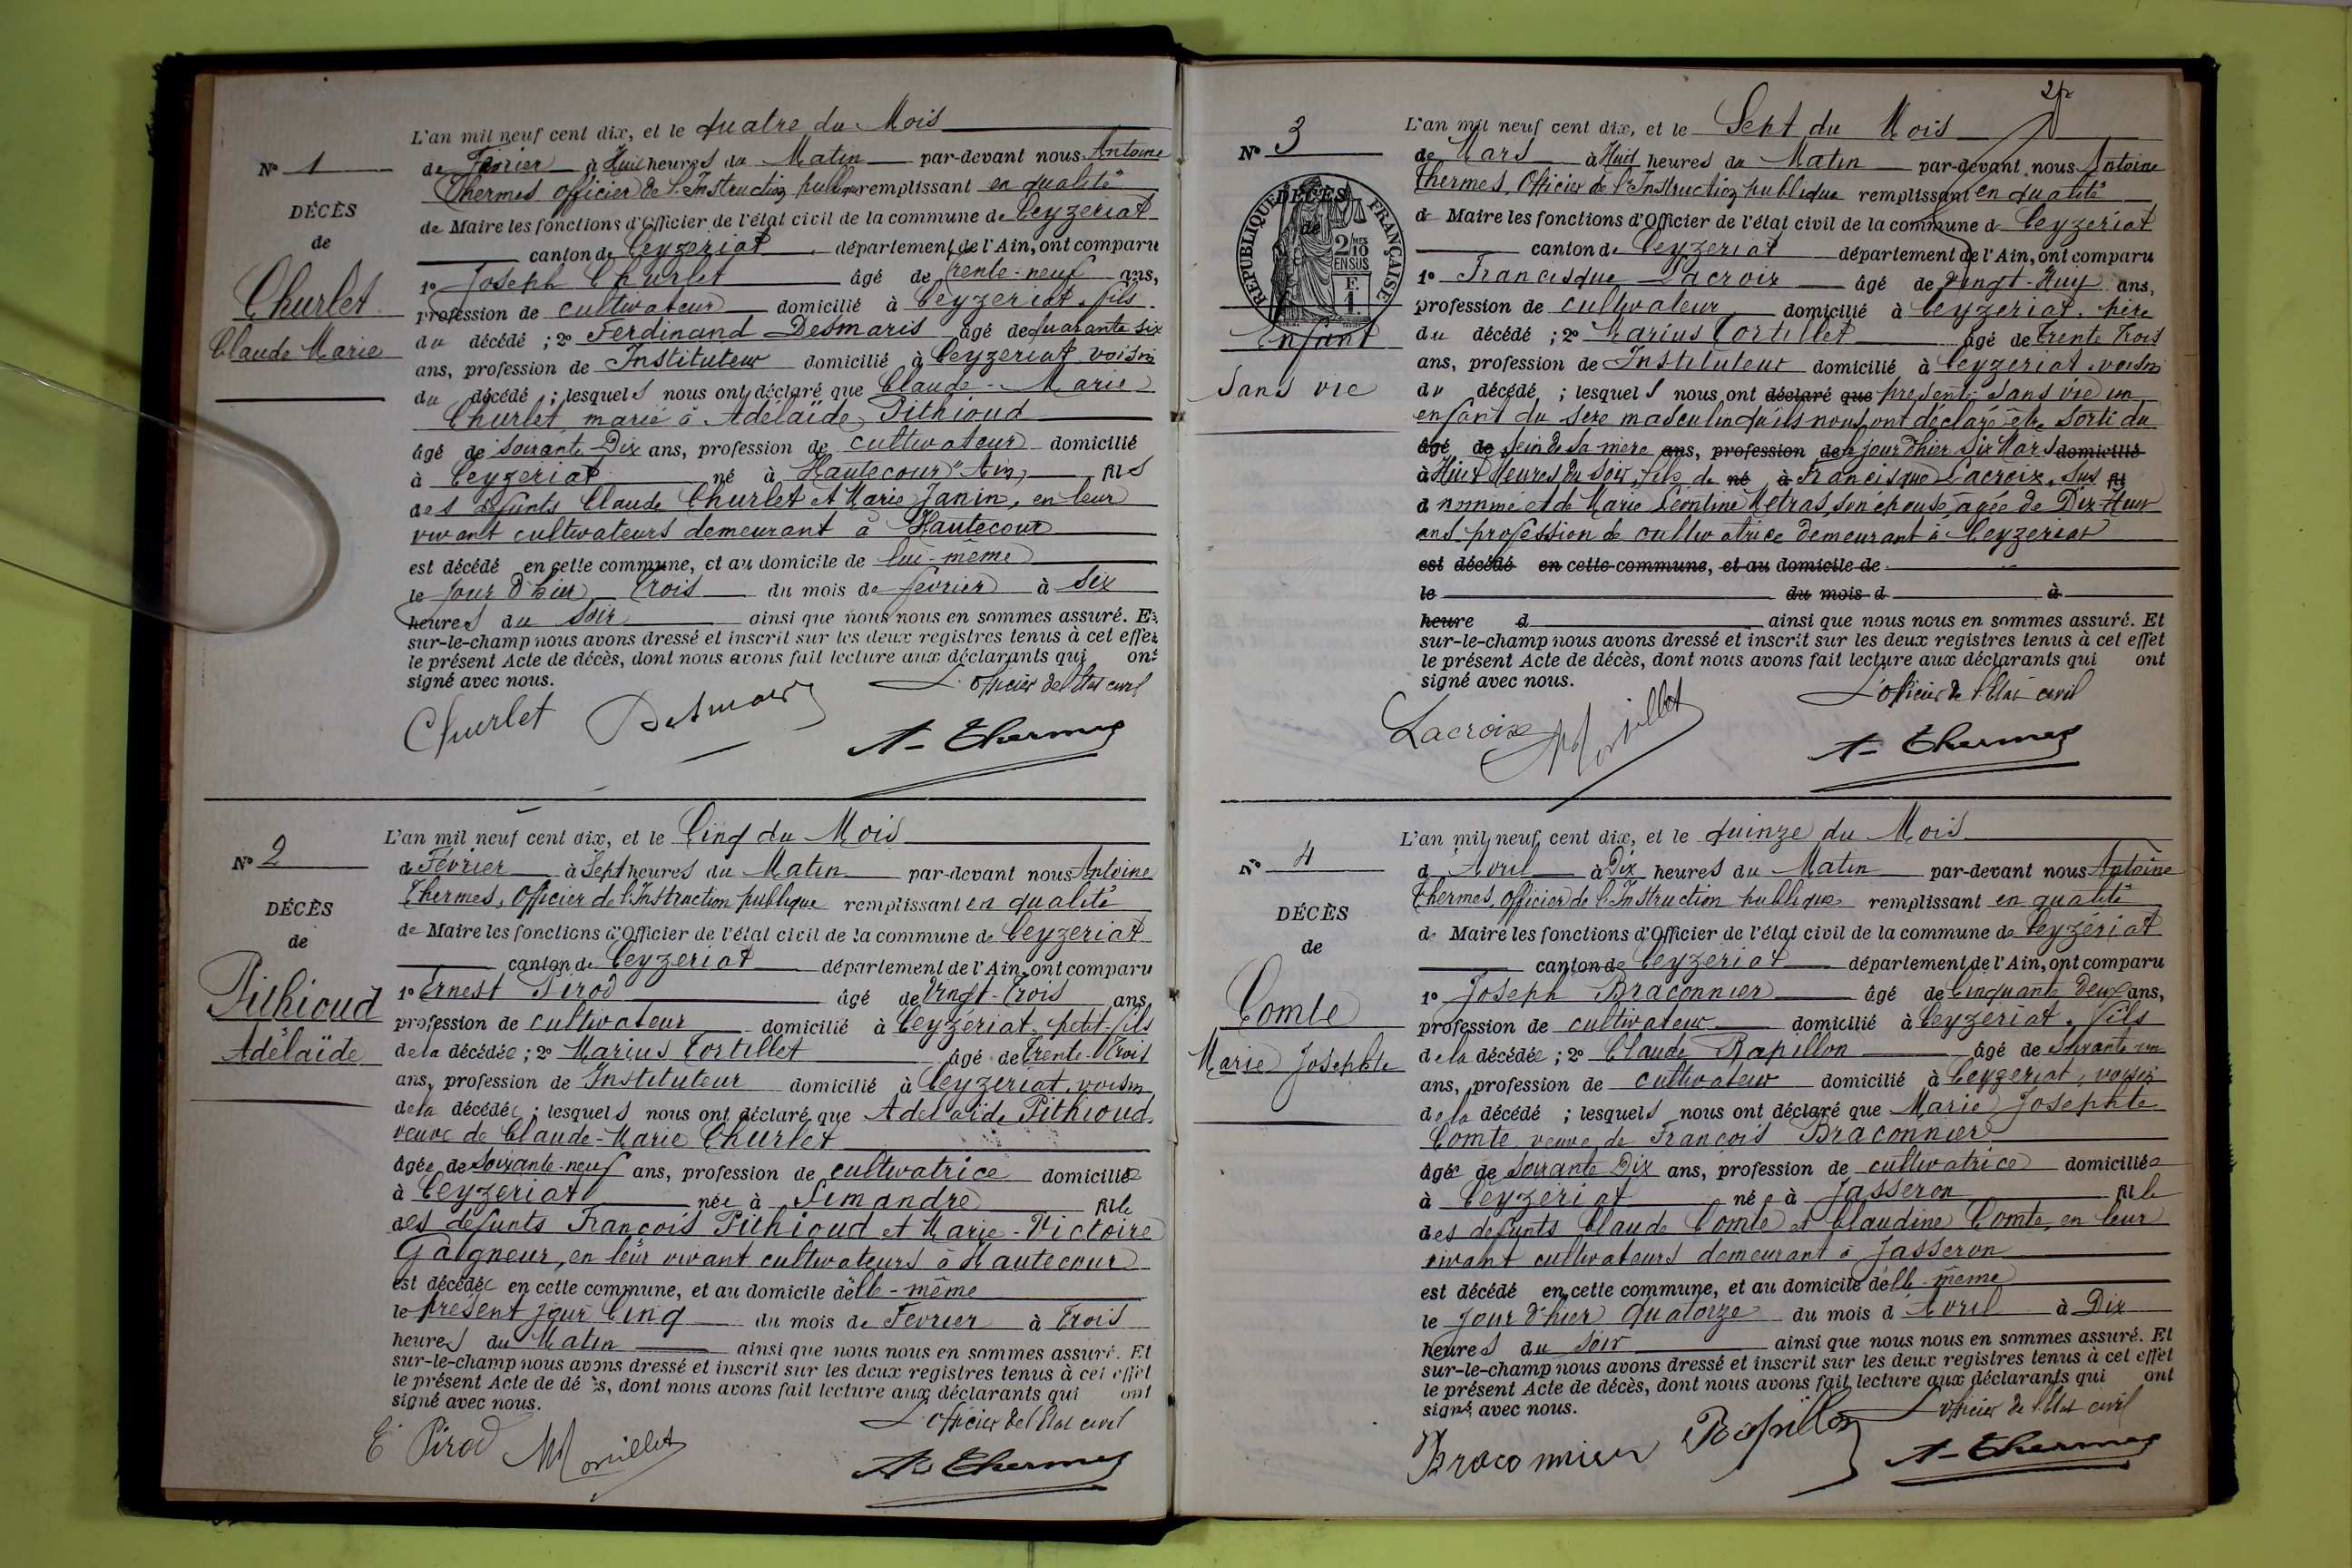 L'an mil neuf cent dix, et le quatre du Mois
N° 1
de Fevrier à Huit heures du Matin par-devant nous Antoine
Thermes officier de l'Instruction publique remplissant en qualité
DÉCÈS
de
de Maire les fonctions d'Officier de l'état civil de la commune de Ceyzeriat
canton de Ceyzeriat département de l'Ain, ont comparu
Churlet
Claude Marie
1° Joseph Churlet âgé de trente-neuf ans,
profession de cultivateur domicilié à Ceyzeriat, fils
du décédé ; 2° Ferdinand Desmaris âgé de quarante six
ans, profession de Instituteur domicilié à Ceyzeriat voisin
du décédé ; lesquels nous ont déclaré que Claude-Marie
Churlet marié à Adélaïde Pithioud
âgé de soixante-Dix ans, profession de cultivateur domicilié
à Ceyzeriat né à Hautecour "Ain" fils
des défunts Claude Churlet et Marie Janin, en leur
vivant cultivateurs demeurant à Hautecour
est décédé en cette commune, et au domicile de lui-même
le jour d'hier Trois du mois de fevrier à six
heures du soir ainsi que nous nous en sommes assuré. Et
sur-le-champ nous avons dressé et inscrit sur les deux registres tenus à cet effet
le présent Acte de décès, dont nous avons fait lecture aux déclarants qui ont
signé avec nous.
L'officier de l'Etat civil
Churlet Desmaris
A. Thermes
L'an mil neuf cent dix, et le Cinq du Mois
N° 2
de Fevrier à Sept heures du Matin par-devant nous Antoine
Thermes, Officier de l'Instruction publique remplissant en qualité
DÉCÈS
de
de Maire les fonctions d'Officier de l'état civil de la commune de Ceyzeriat
canton de Ceyzeriat département de l'Ain, ont comparu
Pithioud
Adélaïde
1° Ernest Pirod âgé de Vingt-Trois ans,
profession de cultivateur domicilié à Ceyzériat, petit-fils
de la décédée ; 2° Marius Tortillet âgé de Trente-Trois
ans, profession de Instituteur domicilié à Ceyzeriat, voisin
de la décédée ; lesquels nous ont déclaré que Adélaïde Pithioud,
veuve de Claude-Marie Churlet
âgée de soixante-neuf ans, profession de cultivatrice domiciliée
à Ceyzeriat née à Simandre fille
des défunts François Pithioud et Marie-Victoire
Gaigneur, en leur vivant cultivateurs à Hautecour
est décédée en cette commune, et au domicile d'elle-même
le présent jour Cinq du mois de Fevrier à Trois
heures du Matin ainsi que nous nous en sommes assuré. Et
sur-le-champ nous avons dressé et inscrit sur les deux registres tenus à cet effet
le présent Acte de décès, dont nous avons fait lecture aux déclarants qui ont
signé avec nous.
L'officier de l'Etat civil
E. Pirod M Tortillet
A. Thermes
L'an mil neuf cent dix, et le Sept du Mois
N° 3
de Mars à Huit heures du Matin par-devant nous Antoine
Thermes, Officier de l'Instruction publique remplissant en qualité
DÉCÈS
de
RÉPUBLIQUE FRANÇAISE
2/10MES EN SUS
F. 1.
de Maire les fonctions d'Officier de l'état civil de la commune d Ceyzériat
canton de Ceyzeriat département de l'Ain, ont comparu
Enfant
Sans vie
1° Francisque Lacroix âgé de vingt-Huit ans,
profession de cultivateur domicilié à Ceyzeriat, père
du décédé ; 2° Marius Tortillet âgé de Trente Trois
ans, profession de Instituteur domicilié à Ceyzeriat, voisin
du décédé ; lesquels nous ont déclaré que presenté sans vie un
enfant du sexe masculin qu'ils nous ont déclaré être sorti du
âgé de sein de sa mere ans, profession de le jour d'hier Six Mars domicilié
à Huit Heures du soir, fils de né à Francisque Lacroix, sus fil
d nommé et de Marie Leontine Metras, son épouse, agée de Dix-Neuf
ans profession de cultivatrice demeurant à Ceyzeriat
est décédé en cette commune, et au domicile de
le du mois d à
heure d ainsi que nous nous en sommes assuré. Et
sur-le-champ nous avons dressé et inscrit sur les deux registres tenus à cet effet
le présent Acte de décès, dont nous avons fait lecture aux déclarants qui ont
signé avec nous.
L'officier de l'Etat civil
Lacroix M Tortillet
A. Thermes
L'an mil neuf cent dix, et le quinze du Mois
N° 4
d Avril à Dix heures du Matin par-devant nous Antoine
Thermes, Officier de l'Instruction publique remplissant en qualité
DÉCÈS
de
de Maire les fonctions d'Officier de l'état civil de la commune de Ceyzériat
canton de Ceyzeriat département de l'Ain, ont comparu
Comte
Marie Josephte
1° Joseph Braconnier âgé de Cinquante deux ans,
profession de cultivateur domicilié à Ceyzériat, fils
de la décédée ; 2° Claude Rapillon âgé de Soixante un
ans, profession de cultivateur domicilié à Ceyzeriat, voisin
de la décédé ; lesquels nous ont déclaré que Marie Josephte
Comte veuve de François Braconnier
âgée de soixante Dix ans, profession de cultivatrice domiciliée
à Ceyzériat née à Jasseron fille
des défunts Claude Comte et Claudine Comte, en leur
vivant cultivateurs demeurant à Jasseron
est décédé en cette commune, et au domicile d'elle-même
le jour d'hier quatorze du mois d Avril à Dix
heures du soir ainsi que nous nous en sommes assuré. Et
sur-le-champ nous avons dressé et inscrit sur les deux registres tenus à cet effet
le présent Acte de décès, dont nous avons fait lecture aux déclarants qui ont
signé avec nous.
L'officier de l'Etat civil
Braconnier Rapillon
A. Thermes